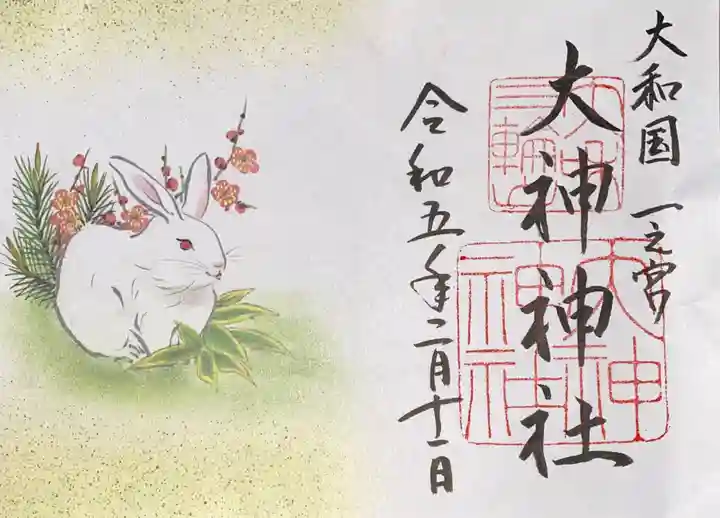 大和国一之宮
三輪山
大神神社
大神神社
令和五年二月十一日